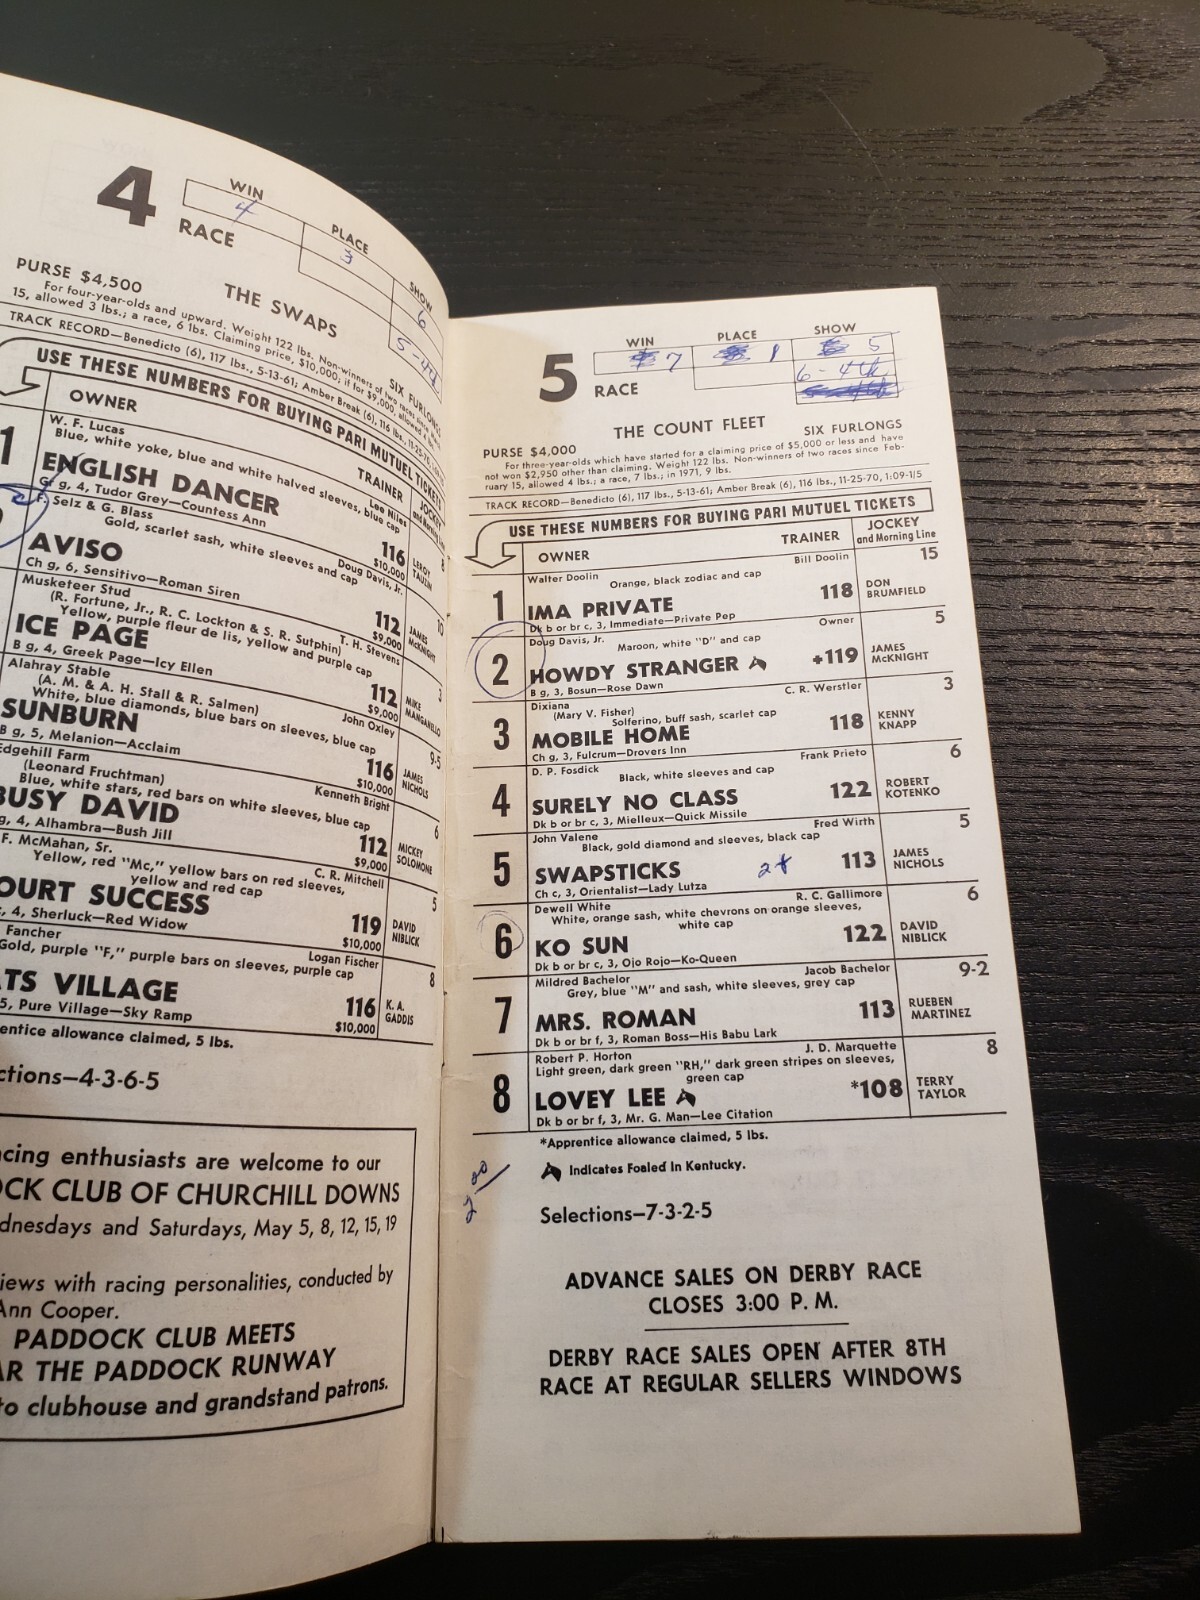 4
RACE
WIN
4
PLACE
3
SHOW
6
5-4th
PURSE $4,500
THE SWAPS
SIX FURLONGS
For four-year-olds and upward. Weight 122 lbs. Non-winners of two races since
15, allowed 3 lbs.; a race, 6 lbs. Claiming price, $10,000; if for $9,000, allowed
TRACK RECORD—Benedicto (6), 117 lbs., 5-13-61; Amber Break (6), 116 lbs., 11-25-70,
USE THESE NUMBERS FOR BUYING PARI MUTUEL TICKETS
OWNER
TRAINER
JOCKEY
and Morning Line
1
W. F. Lucas
Lee Niles
8
Blue, white yoke, blue and white halved sleeves, blue cap
ENGLISH DANCER
116
LEROY
TAUZIN
Gr g, 4, Tudor Grey—Countess Ann
$10,000
F. Selz & G. Blass
Doug Davis, Jr.
10
Gold, scarlet sash, white sleeves and cap
AVISO
112
JAMES
McKNIGHT
Ch g, 6, Sensitivo—Roman Siren
$9,000
Musketeer Stud
T. H. Stevens
3
(R. Fortune, Jr., R. C. Lockton & S. R. Sutphin)
Yellow, purple fleur de lis, yellow and purple cap
ICE PAGE
112
MIKE
MANGANELLO
B g, 4, Greek Page—Icy Ellen
$9,000
Alahray Stable
John Oxley
9-5
(A. M. & A. H. Stall & R. Salmen)
White, blue diamonds, blue bars on sleeves, blue cap
SUNBURN
116
JAMES
NICHOLS
B g, 5, Melanion—Acclaim
$10,000
Edgehill Farm
Kenneth Bright
6
(Leonard Fruchtman)
Blue, white stars, red bars on white sleeves, blue cap
BUSY DAVID
112
MICKEY
SOLOMONE
g, 4, Alhambra—Bush Jill
$9,000
F. McMahan, Sr.
C. R. Mitchell
5
Yellow, red "Mc," yellow bars on red sleeves,
yellow and red cap
OURT SUCCESS
119
DAVID
NIBLICK
4, Sherluck—Red Widow
$10,000
Fancher
Logan Fischer
8
Gold, purple "F," purple bars on sleeves, purple cap
TS VILLAGE
116
K. A.
GADDIS
5, Pure Village—Sky Ramp
$10,000
entice allowance claimed, 5 lbs.
ctions—4-3-6-5
cing enthusiasts are welcome to our
OCK CLUB OF CHURCHILL DOWNS
dnesdays and Saturdays, May 5, 8, 12, 15, 19
iews with racing personalities, conducted by
Ann Cooper.
PADDOCK CLUB MEETS
AR THE PADDOCK RUNWAY
to clubhouse and grandstand patrons.
5
RACE
WIN
7
PLACE
1
SHOW
5
6-4th
THE COUNT FLEET
PURSE $4,000
SIX FURLONGS
For three-year-olds which have started for a claiming price of $5,000 or less and have
not won $2,950 other than claiming. Weight 122 lbs. Non-winners of two races since Feb-
ruary 15, allowed 4 lbs.; a race, 7 lbs.; in 1971, 9 lbs.
TRACK RECORD—Benedicto (6), 117 lbs., 5-13-61; Amber Break (6), 116 lbs., 11-25-70, 1:09-1/5
USE THESE NUMBERS FOR BUYING PARI MUTUEL TICKETS
OWNER
TRAINER
JOCKEY
and Morning Line
1
Walter Doolin
Bill Doolin
15
Orange, black zodiac and cap
IMA PRIVATE
118
DON
BRUMFIELD
Dk b or br c, 3, Immediate—Private Pep
2
Doug Davis, Jr.
Owner
5
Maroon, white "D" and cap
HOWDY STRANGER
+119
JAMES
McKNIGHT
B g, 3, Bosun—Rose Dawn
3
Dixiana
C. R. Werstler
3
(Mary V. Fisher)
Solferino, buff sash, scarlet cap
MOBILE HOME
118
KENNY
KNAPP
Ch g, 3, Fulcrum—Drovers Inn
4
D. P. Fosdick
Frank Prieto
6
Black, white sleeves and cap
SURELY NO CLASS
122
ROBERT
KOTENKO
Dk b or br c, 3, Mielleux—Quick Missile
5
John Valene
Fred Wirth
5
Black, gold diamond and sleeves, black cap
SWAPSTICKS
113
JAMES
NICHOLS
Ch c, 3, Orientalist—Lady Lutza
6
Dewell White
R. C. Gallimore
6
White, orange sash, white chevrons on orange sleeves,
white cap
KO SUN
122
DAVID
NIBLICK
Dk b or br c, 3, Ojo Rojo—Ko-Queen
7
Mildred Bachelor
Jacob Bachelor
9-2
Grey, blue "M" and sash, white sleeves, grey cap
MRS. ROMAN
113
RUEBEN
MARTINEZ
Dk b or br f, 3, Roman Boss—His Babu Lark
8
Robert P. Horton
J. D. Marquette
8
Light green, dark green "RH," dark green stripes on sleeves,
green cap
LOVEY LEE
*108
TERRY
TAYLOR
Dk b or br f, 3, Mr. G. Man—Lee Citation
*Apprentice allowance claimed, 5 lbs.
Indicates Foaled In Kentucky.
2.00
Selections—7-3-2-5
ADVANCE SALES ON DERBY RACE
CLOSES 3:00 P. M.
DERBY RACE SALES OPEN AFTER 8TH
RACE AT REGULAR SELLERS WINDOWS